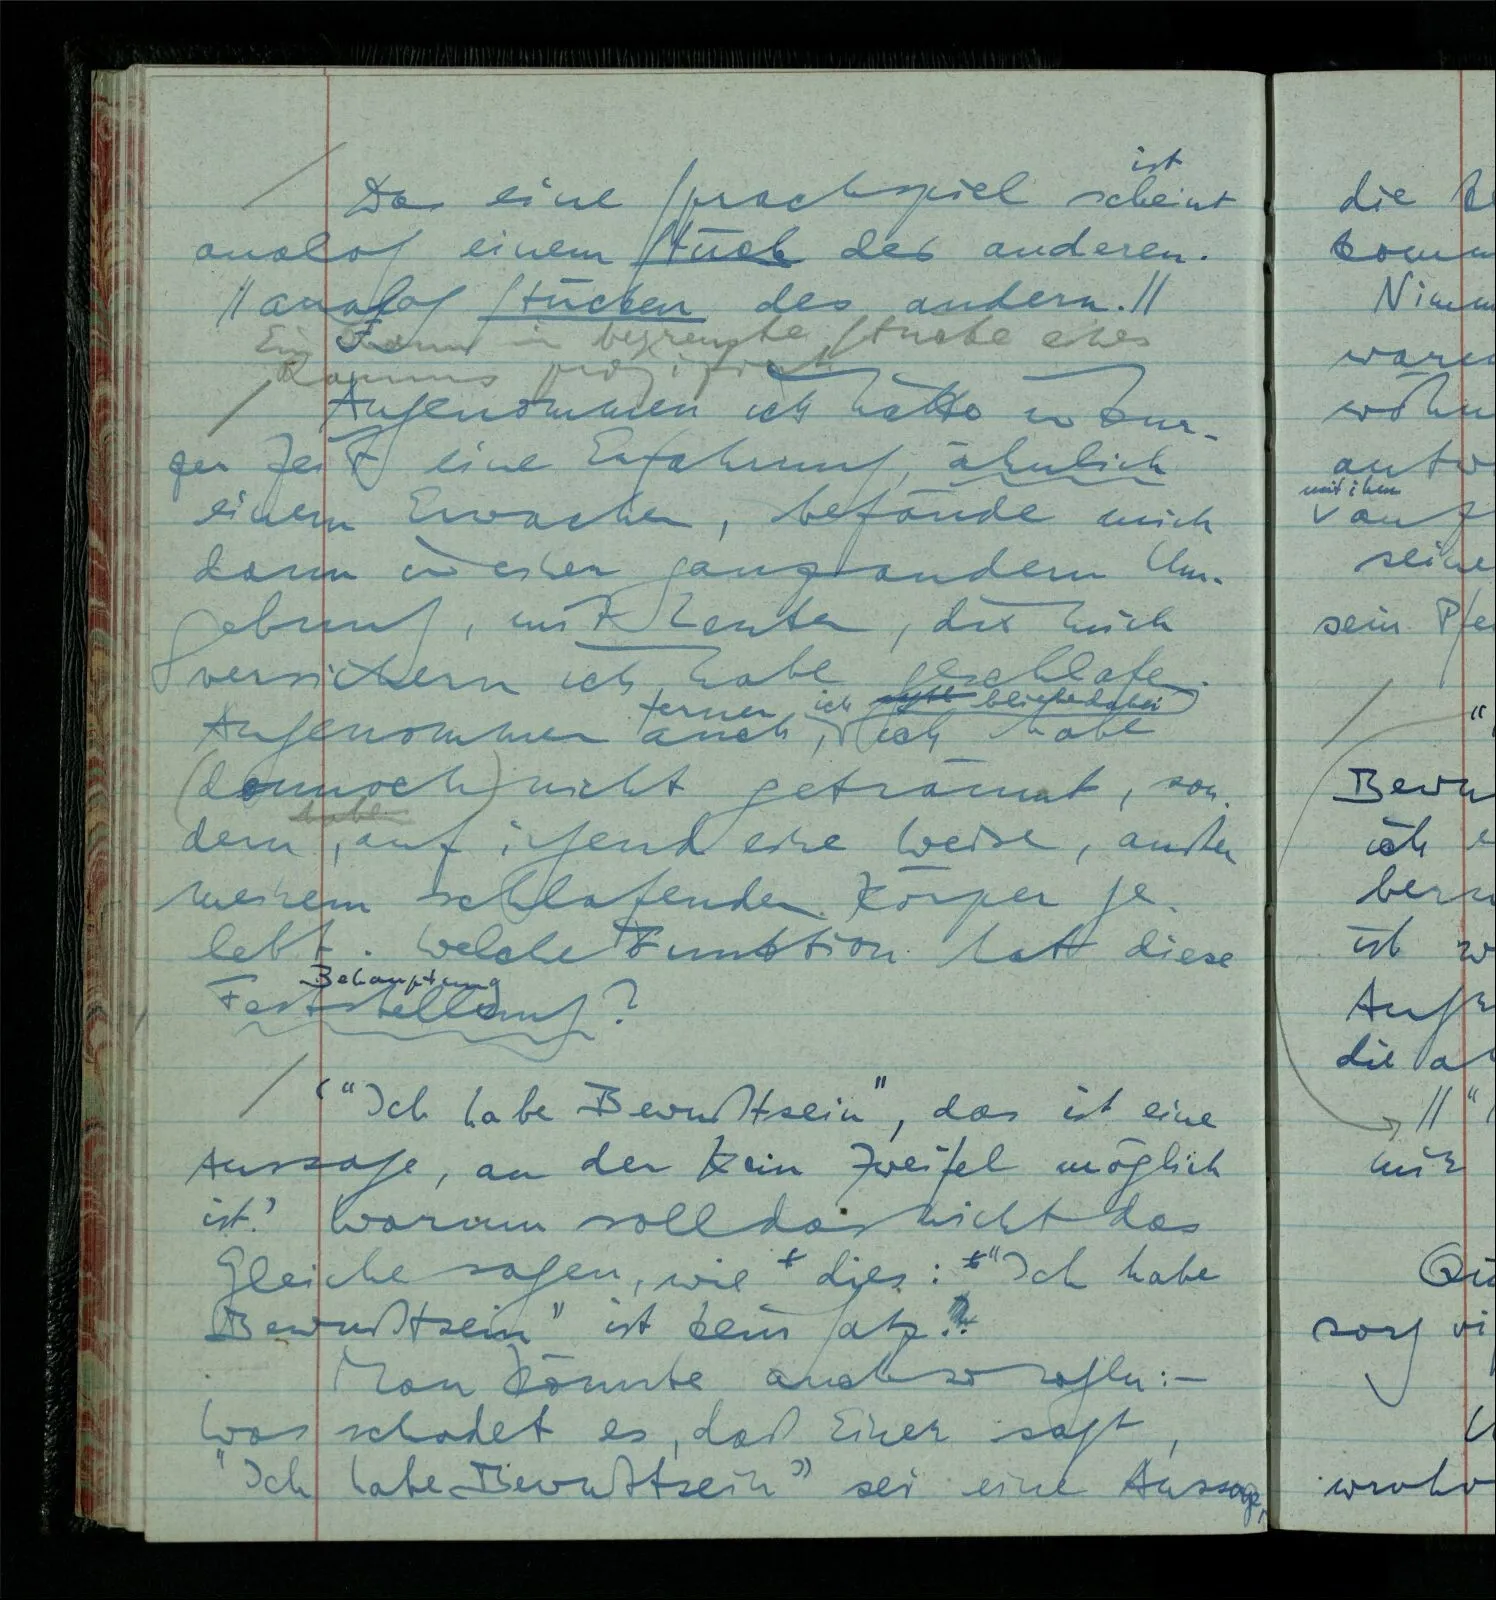 ist
Das eine Sprachspiel scheint
analog einem Stück des anderen.
// analog Stücken des andern. //
Ein Raum in begrenzte Stücke eines
Raums projiziert
Angenommen ich hätte in kur-
zer Zeit eine Erfahrung, ähnlich
einem Erwachen, befände mich
dann in einer ganz andern Um-
gebung, mit Leuten, die mich
versichern ich habe geschlafen.
ferner ich bliebe dabei
Angenommen auch, ich habe
(dennoch) nicht geträumt, son-
habe
dern, auf irgend eine Weise, außer
meinem schlafenden Körper ge-
lebt. Welche Funktion hat diese
Behauptung
Feststellung?
‘“Ich habe Bewußtsein”, das ist eine
Aussage, an der kein Zweifel möglich
ist.’ Warum soll das nicht das
Gleiche sagen, wie dies: “Ich habe
Bewußtsein” ist kein Satz?
Man könnte auch so sagen: –
Was schadet es, daß Einer sagt,
“Ich habe Bewußtsein” sei eine Aussage,
die
Nimm
mit ihm
v auf
seine
sein
"
ich
ist
die
// "
mir